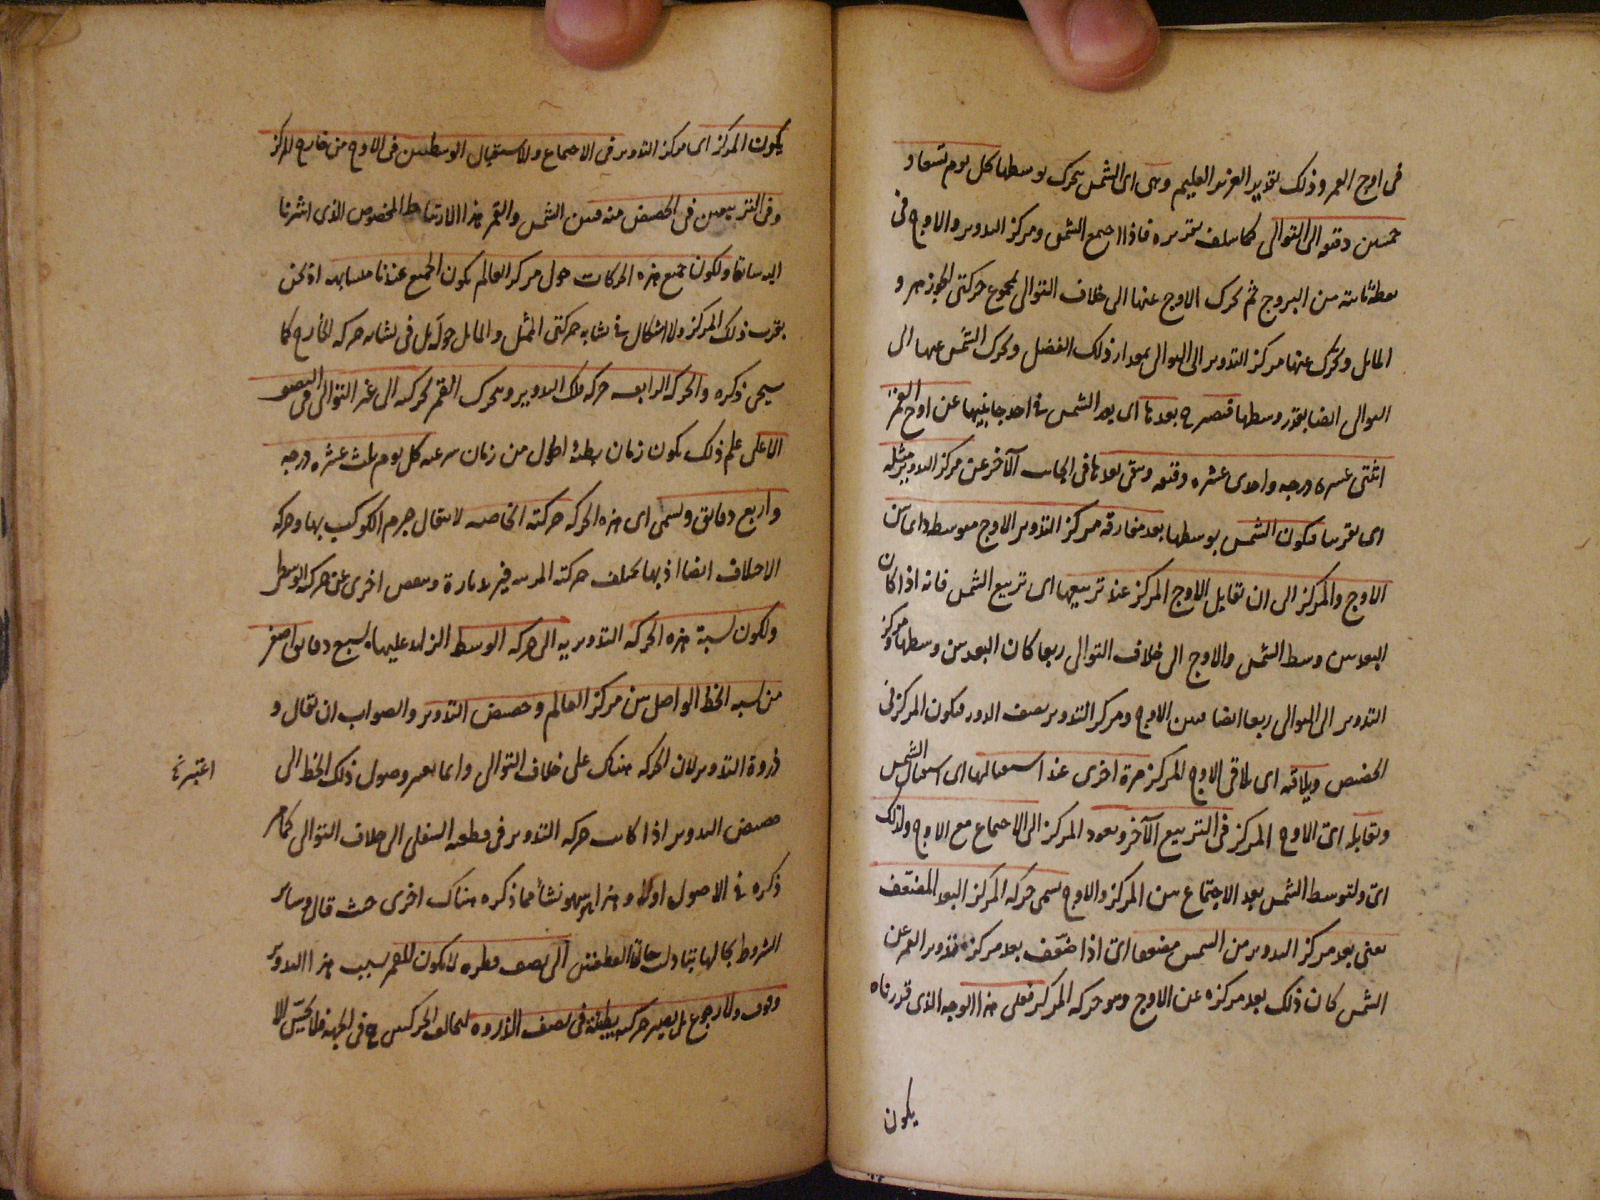 فى اوج القمر وذلك تقدير العزيز العليم وهى اى الشمس تتحرك بوسطها كل يوم تسعا و
خمسين دقيقة الى التوالى كما سلف تقريره فاذا اجتمع الشمس ومركز التدوير والاوج فى
نقطة ثابتة من البروج ثم تحرك الاوج عنها الى خلاف التوالى بمجموع حركتى الجوزهر و
المايل وتحرك عنها مركز التدوير الى التوالى بمقدار ذلك الفضل وتحرك الشمس عنها الى
التوالى ايضا بقدر وسطها فيصير ح بعدها اى بعد الشمس فى احد جانبيها عن اوج القمر
اثنتى عشرة درجه واحدى عشره دقيقه وبقى بعدها فى الجانب الآخر عن مركز التدوير مثله
اى تقريبا فيكون الشمس بوسطها بعد مفارقة مركز التدوير الاوج متوسط دايما بين
الاوج والمركز الى ان تقابل الاوج المركز عند تربيعها اى تربيع الشمس فانه اذا كان
البعد بين وسط الشمس والاوج الى خلاف التوالى ربعا كان البعد بين وسطها ومركز
التدوير الى التوالى ربعا ايضا فبين الاوج ومركز التدوير نصف الدور فيكون المركز فى
الحضيض ويلاقيه اى يلاقى الاوج المركز مرة اخرى عند استقبالها اى استقبال الشمس
ويقابله اى الاوج المركز فى التربيع الآخر ويعود المركز الى الاجتماع مع الاوج ولذلك
اى ولتوسط الشمس بعد الاجتماع بين المركز والاوج يسمى حركة المركز البعد المضعف
يعنى بعد مركز التدوير من الشمس مضعفا اى اذا ضعّف بعد مركز تدوير القمر عن
الشمس كان ذلك بعد مركزه عن الاوج وهو حركة المركز فعلى هذا الوجه الذى قررناه
يكون
يكون المركز اى مركز التدوير فى الاجتماع والاستقبال الوسطيين فى الاوج من خارج المركز
وفى التربيعين فى الحضيض منه فبين الشمس والقمر هذا الارتباط المخصوص الذى اشرنا
اليه سابقا ولكون جميع هذه الحركات حول مركز العالم يكون الجميع عندنا متشابهه اذ نحن
بقرب ذلك المركز ولا اشكال فى تشابه حركتى الممثل والمايل حوله بل فى تشابه حركة الخارج كما
سيجى ذكره والحركة الرابعه حركة فلك التدوير وتحرك القمر بحركته الى غير التوالى فى النصف
الاعلى فلذلك يكون زمان بطئه اطول من زمان سرعته كل يوم ثلث عشره درجه
واربع دقايق وتسمى اى هذه الحركة حركته الخاصه لانتقال جرم الكوكب بها وحركة
الاختلاف ايضا اذ بها يختلف حركته المرئية فيزيد تارة وينقص اخرى عن حركة الوسط
ولكون نسبة هذه الحركة التدويريه الى حركة الوسط الزايد عليها بسبع دقايق اصغر
من نسبة الخط الواصل بين مركز العالم وحضيض التدوير والصواب ان تقال و
ذروة التدوير لان الحركة هناك على خلاف التوالى وانما يعتبر وصول ذلك الخط الى
حضيض التدوير اذا كانت حركة التدوير فى قطعته السفلى الى خلاف التوالى كما مر
ذكره فى الاصول اولا وهذا سهو نشأ مما ذكره هناك اخرى حيث قال وساير
الشروط بحالها يتبادل حالتا القطعتين الى نصف قطره لا يكون للقمر بسبب هذا التدوير
وقوف ولا رجوع بل يصير حركته بطيئة فى نصف الذروه لتخالف الحركتين ح فى الجهة فلا تحسّ الا
اعتبرته